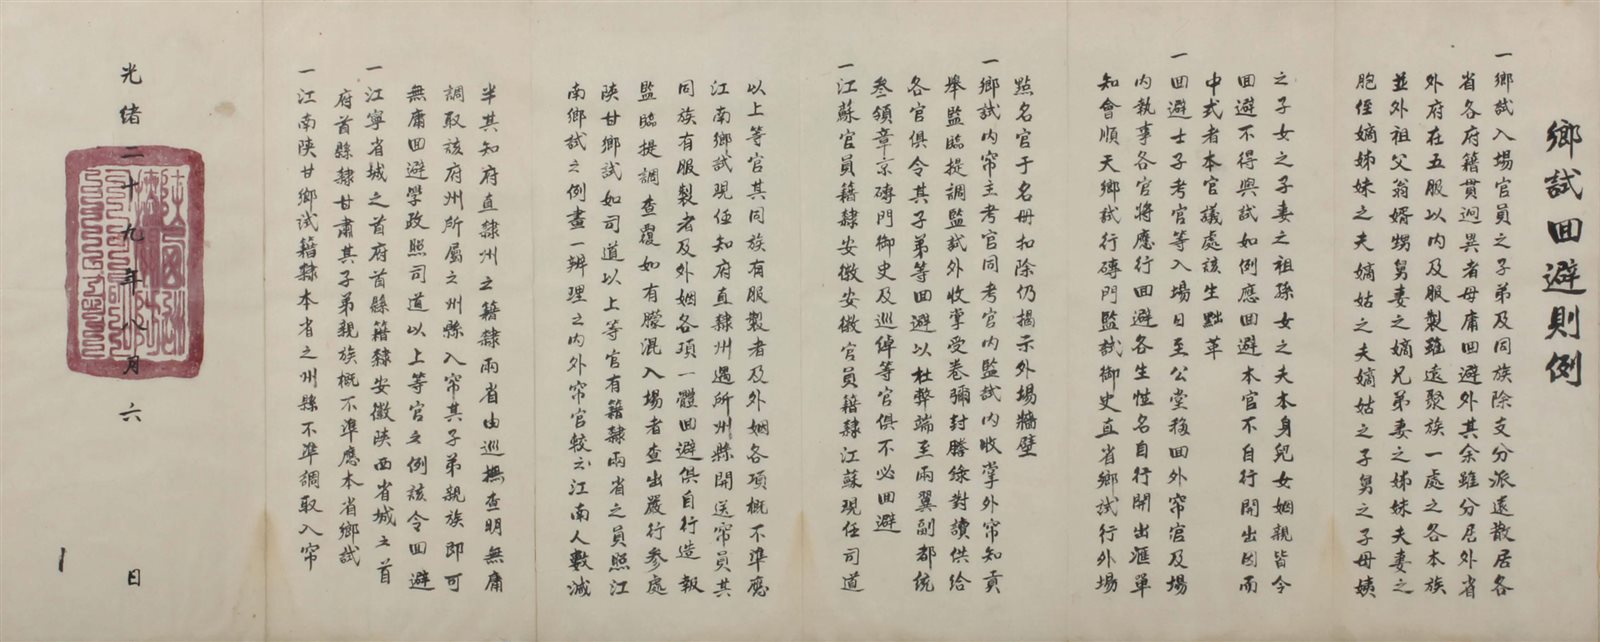 鄉試回避則例
一鄉試入場官員之子弟及同族除支分派遠散居各
省各府籍貫迥異者毋庸回避外其余雖分居外省
外府在五服以内及服製雖遠聚族一處之各本族
並外祖父翁婿甥舅妻之嫡兄弟妻之姊妹夫妻之
胞侄嫡姊妹之夫嫡姑之夫嫡姑之子舅之子母姨
之子女之子妻之祖孫女之夫本身兒女姻親皆令
回避不得與試如例應回避本官不自行開出因而
中式者本官議處該生黜革
一回避士子考官等入場日至公堂移回外帘官及場
内執事各官將應行回避各生姓名自行開出滙單
知會順天鄉試行磚門監試御史直省鄉試行外場
點名官于名册扣除仍揭示外場牆壁
一鄉試内帘主考官同考官内監試内收掌外帘知貢
舉監臨提調監試外收掌受卷彌封謄錄對讀供給
各官俱令其子弟等回避以杜弊端至兩翼副都統
叅領章京磚門御史及巡倬等官俱不必回避
一江蘇官員籍隸安徽安徽官員籍隸江蘇現任司道
以上等官其同族有服製者及外姻各項概不準應
江南鄉試現任知府直隸州遇所州縣開送帘員其
同族有服製者及外姻各項一體回避俱自行造報
監臨提調查覆如有朦混入場者查出嚴行參處
陝甘鄉試如司道以上等官有籍隸兩省之員照江
南鄉試之例畫一辨理之内外帘官較云江南人數減
半其知府直隸州之籍隸兩省由巡撫查明無庸
調取該府州所屬之州縣入帘其子弟親族即可
無庸回避學政照司道以上等官之例該令回避
一江寧省城之首府首縣籍隸安徽陝西省城之首
府首縣隸甘肅其子弟親族概不準應本省鄉試
一江南陝甘鄉試籍隸本省之州縣不準調取入帘
光緒二十九年八月六日